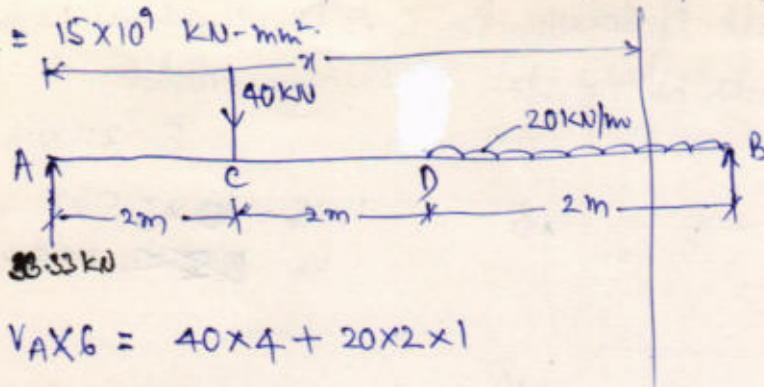 = 15×10⁹ KN-mm².
x
40KN
20KN/m
A
B
C
D
2m
2m
2m
33.33 KN
VA×6 = 40×4 + 20×2×1